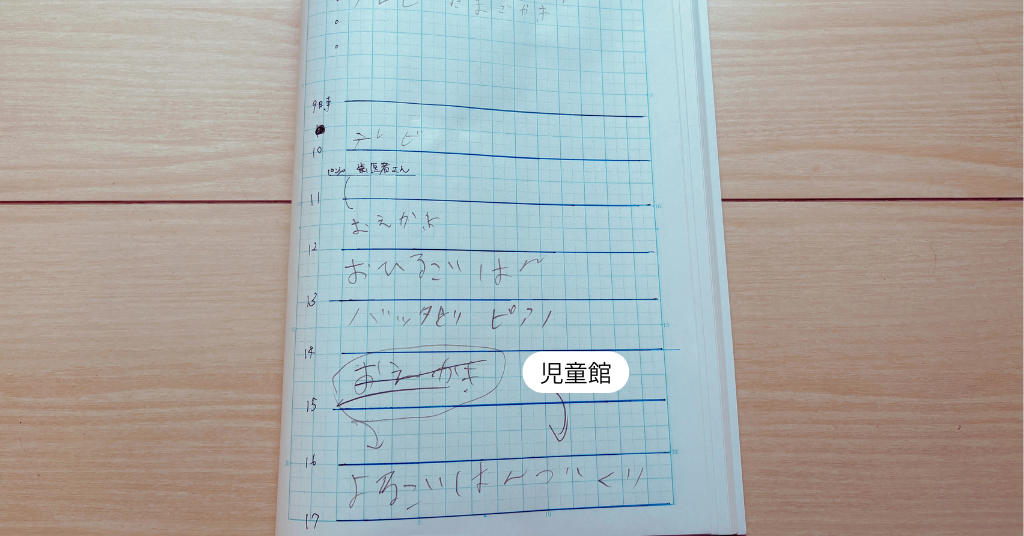 9時
テレビ
10
10:30 歯医者さん
11
おえかき
12
おひるごはん
13
バッタとり ピアノ
14
おえかき
児童館
15
16
よるごはんづくり
17